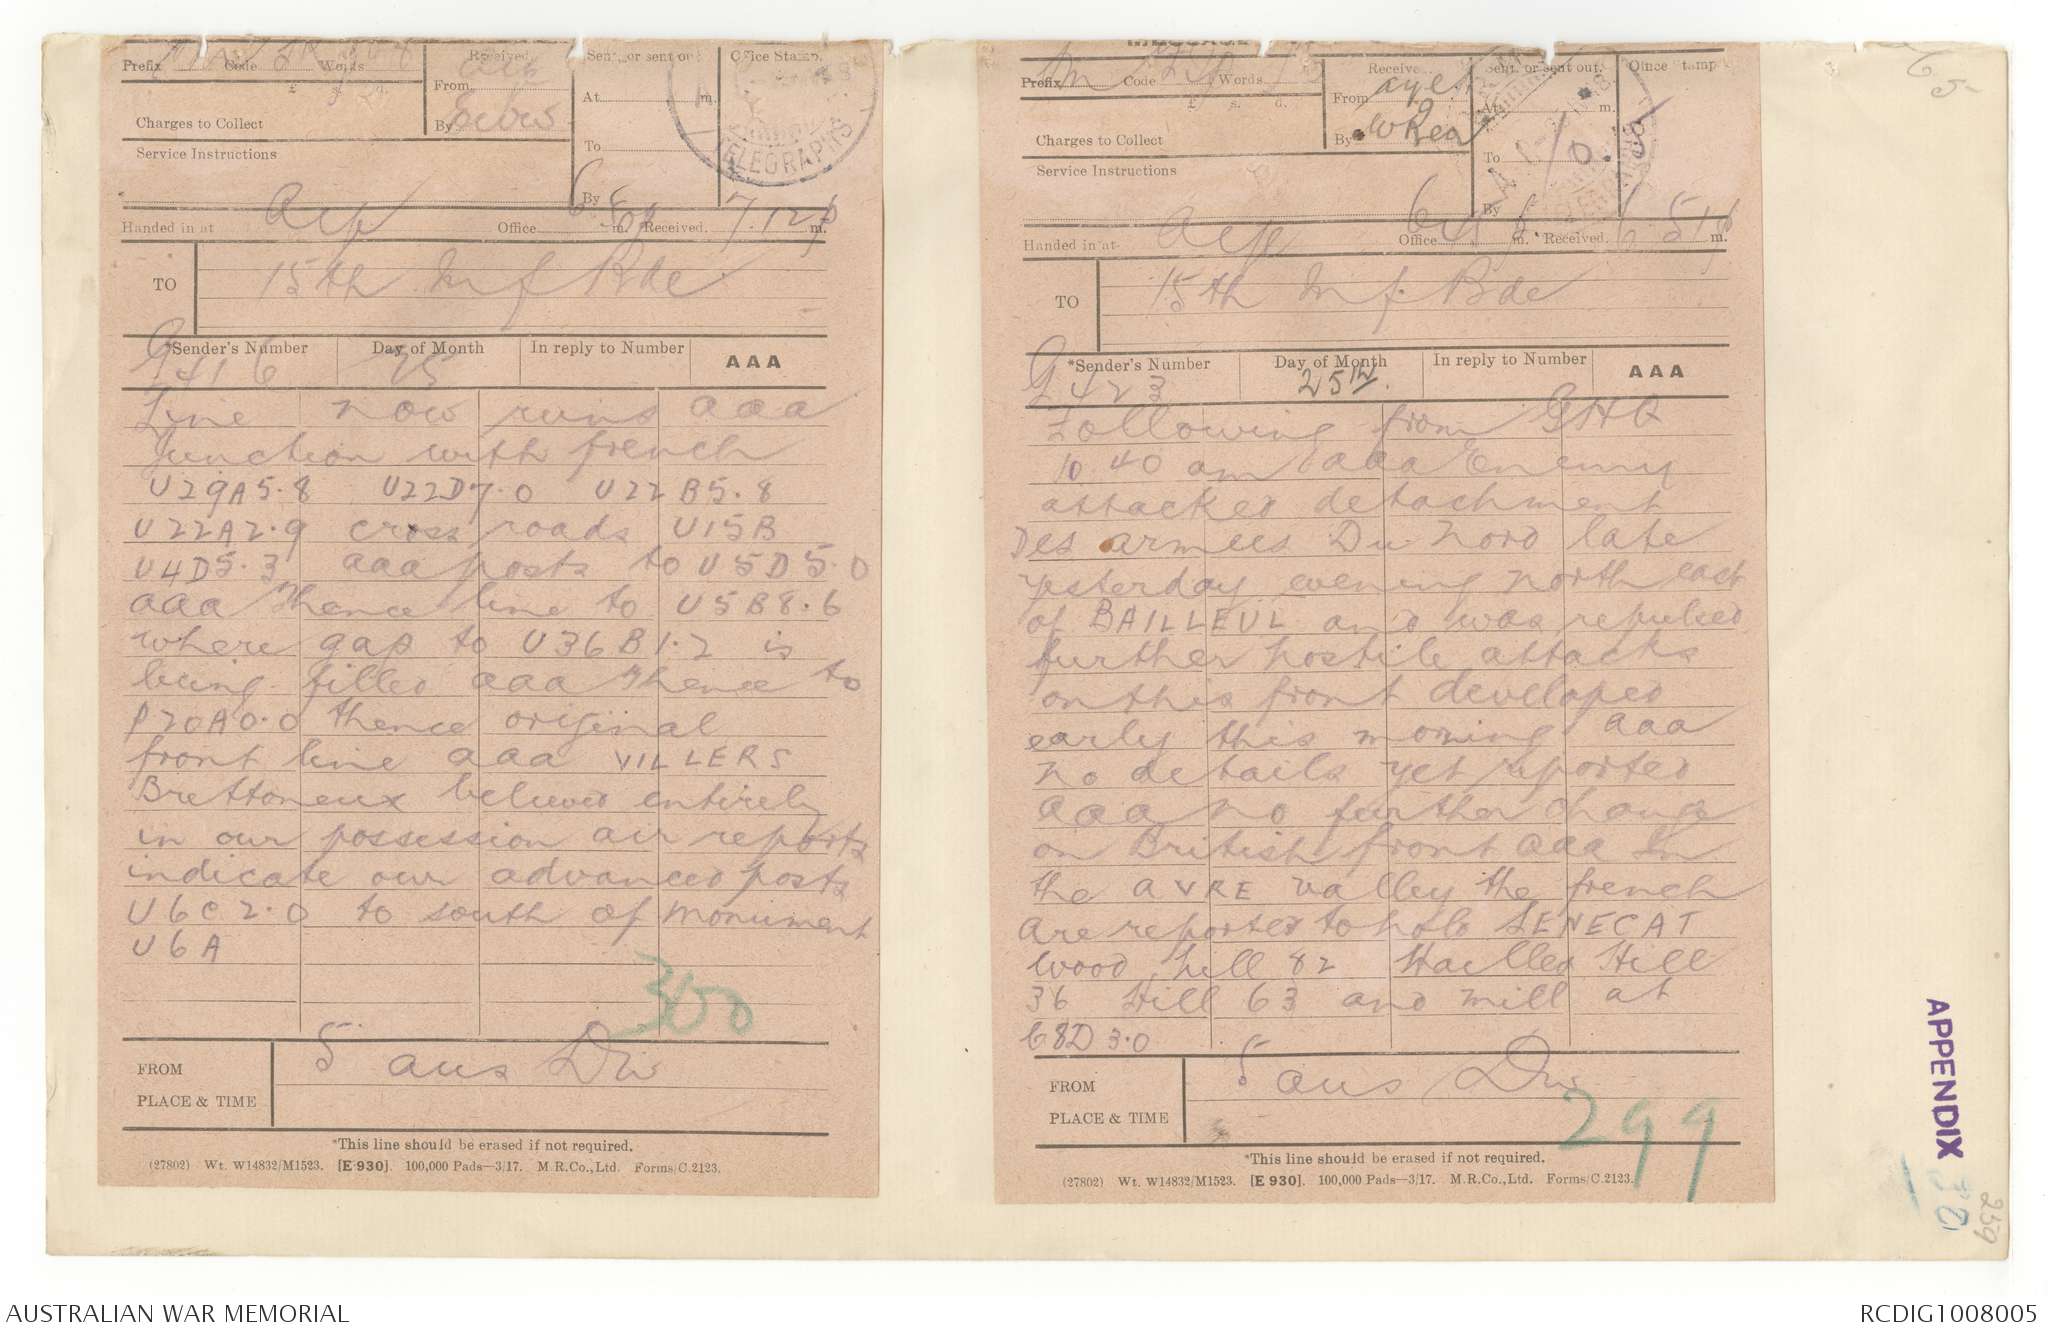 Prefix Code Words
£ s. d.
Charges to Collect
Service Instructions
Received
From
By
Sent, or sent out
At m.
To
By
Office Stamp.
TELEGRAPHS
Handed in at Office m. Received. 7.12p m.
TO 15th Inf Bde
*Sender's Number Day of Month In reply to Number AAA
G416 25
Line now runs aaa
Junction with french
U29A5.8 U22D7.0 U22B5.8
U22A2.9 cross roads U15B
U4D5.3 aaa posts to U5D5.0
aaa Thence line to U5B8.6
where gap to U36B1.2 is
being filled aaa Thence to
P20A0.0 thence original
front line aaa VILLERS
Brettoneux believed entirely
in our possession air reports
indicate our advanced posts
U6C2.0 to south of monument
U6A
300
FROM 5 aus Div
PLACE & TIME
*This line should be erased if not required.
(27802) Wt. W14832/M1523. [E 930]. 100,000 Pads—3/17. M.R.Co., Ltd. Forms/C.2123.
Prefix Code Words
£ s. d.
Charges to Collect
Service Instructions
From
By
Sent, or sent out.
At m.
To
By
Handed in at Office m. Received. 6.51p m.
TO 15th Inf. Bde
*Sender's Number Day of Month In reply to Number AAA
G423 25th.
Following from GHQ
10.40 am aaa Enemy
attacked detachment
Des armees Du Nord late
yesterday evening north east
of BAILLEUL and was repulsed
further hostile attacks
on this front developed
early this morning aaa
no details yet reported
aaa no further change
on British front aaa In
the AVRE valley the french
are reported to hold SENECAT
Wood hill 82 Hailles Hill
36 Hill 63 and mill at
C8D3.0
FROM 5 aus Div
PLACE & TIME
299
*This line should be erased if not required.
(27802) Wt. W14832/M1523. [E 930]. 100,000 Pads—3/17. M.R.Co., Ltd. Forms/C.2123.
65
APPENDIX
259
AUSTRALIAN WAR MEMORIAL
RCDIG1008005